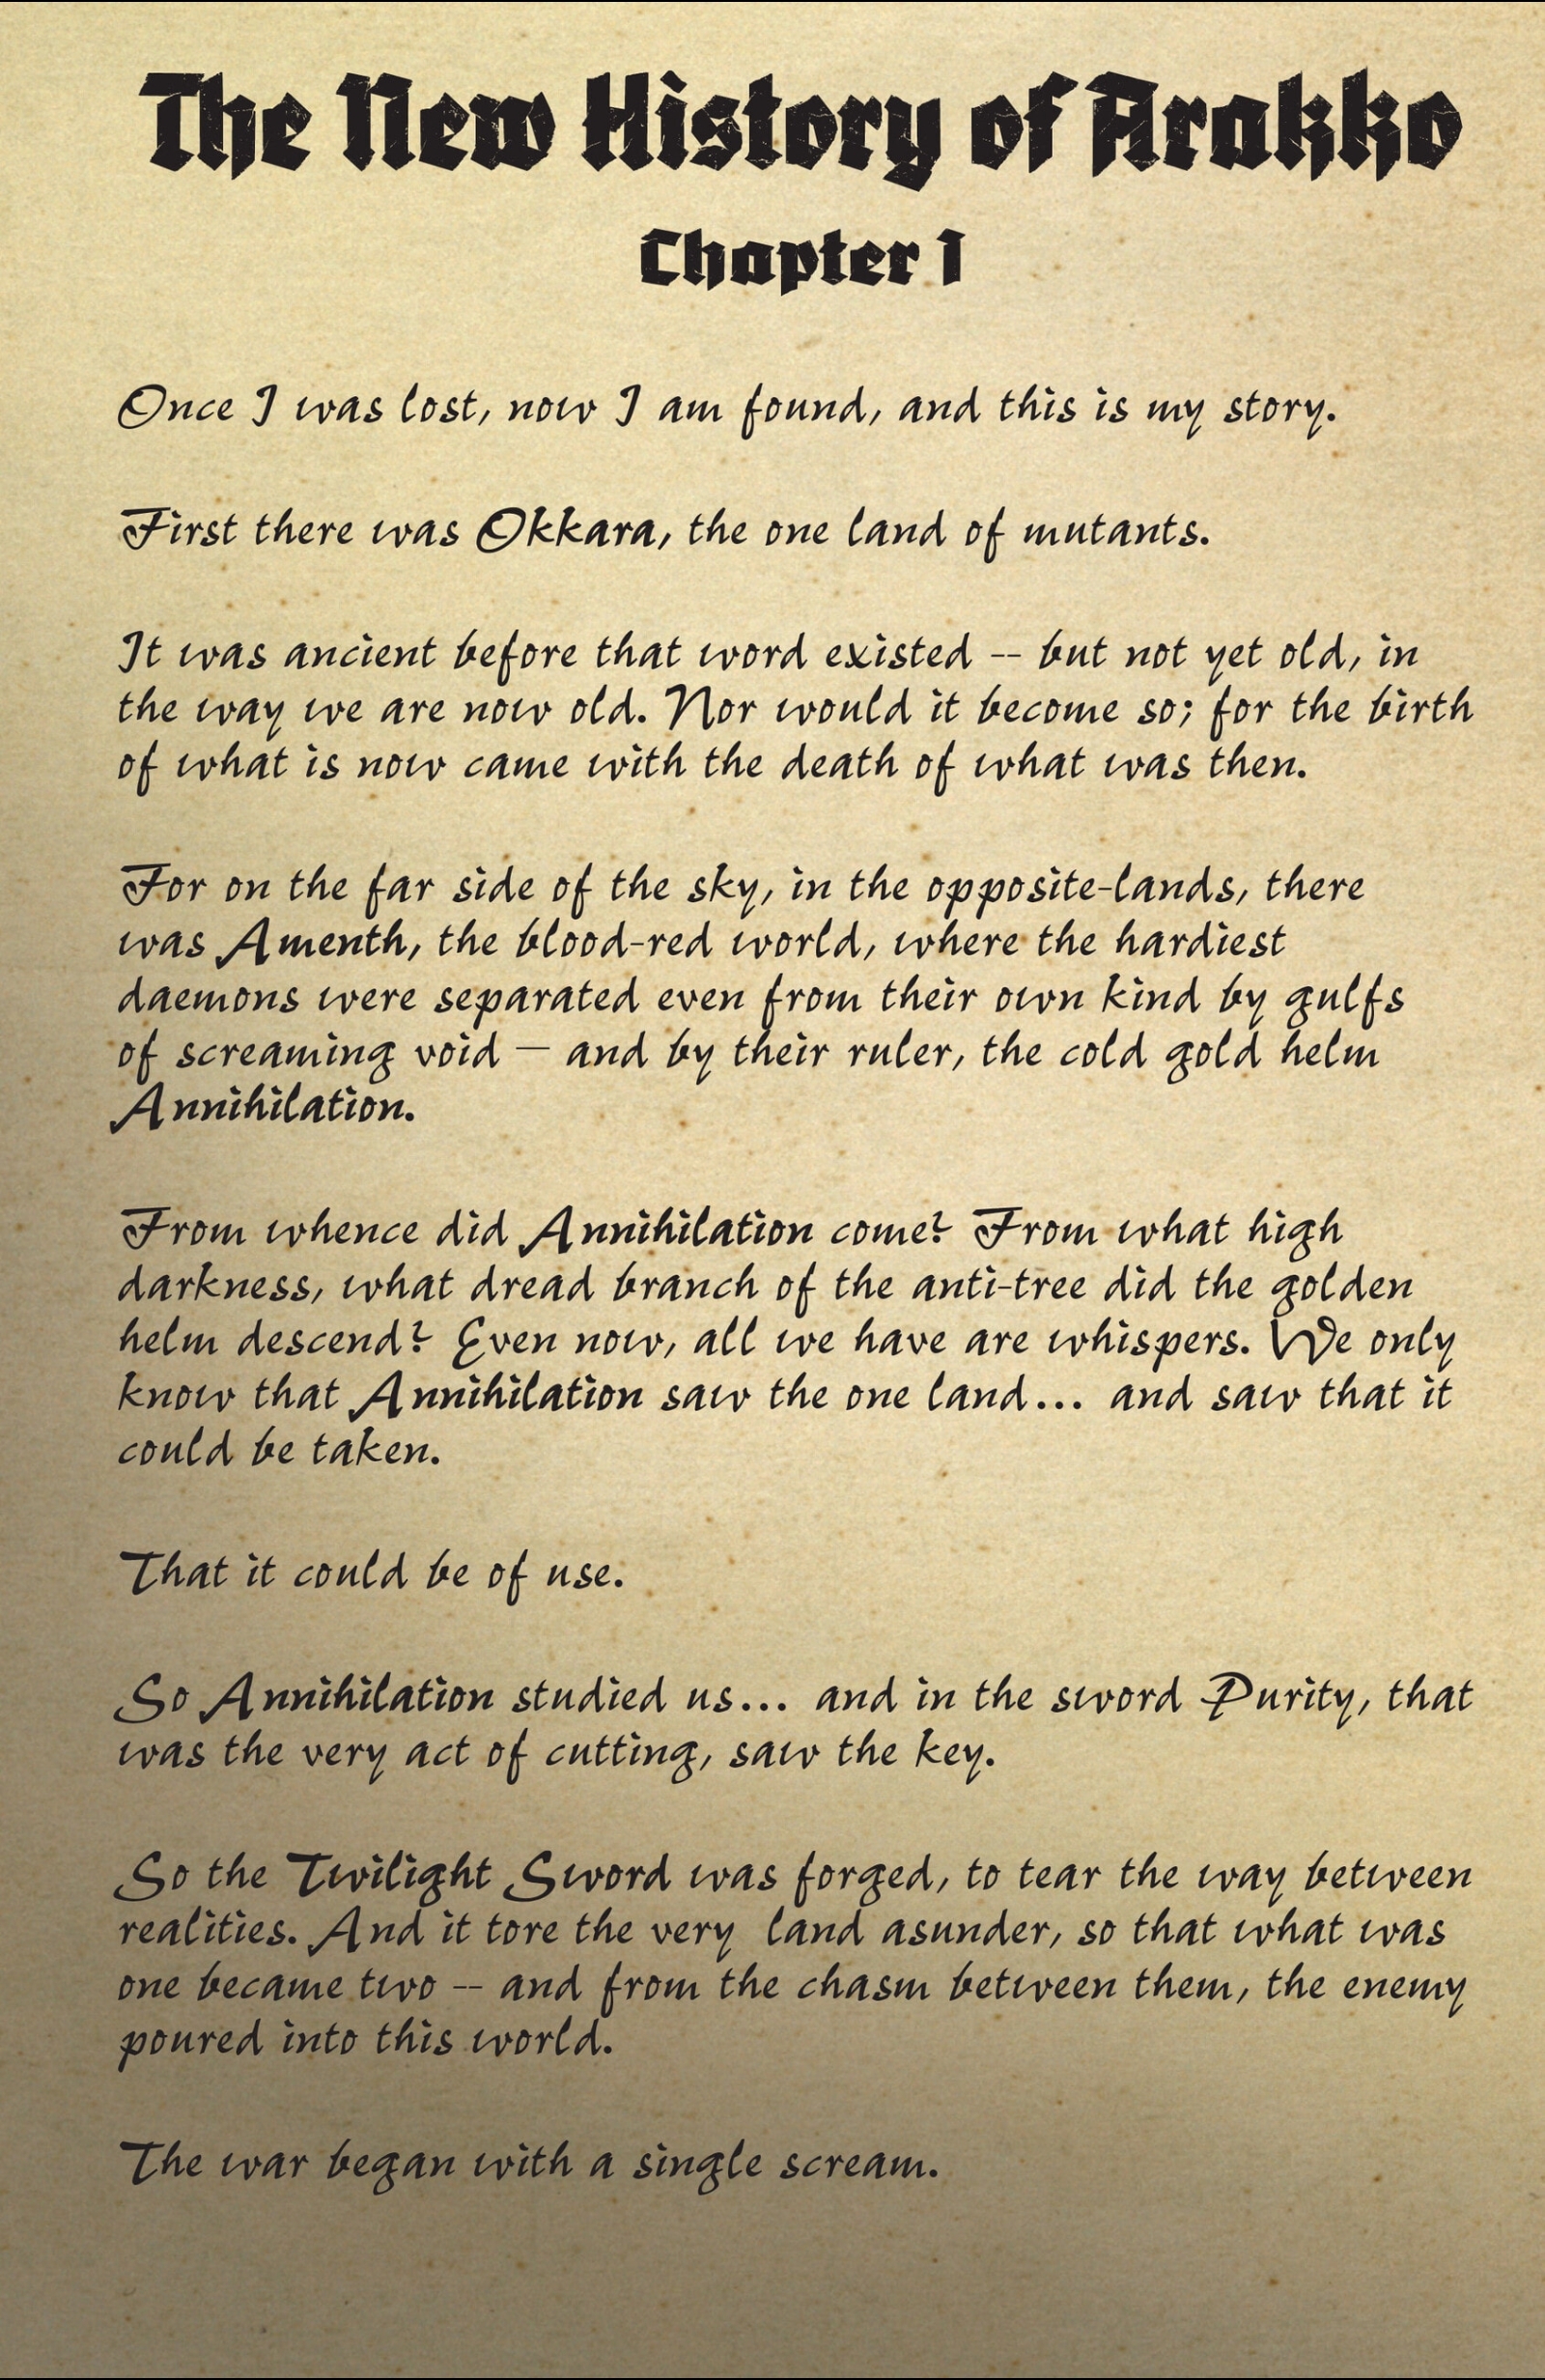 The New History of Arakko
Chapter 1
Once I was lost, now I am found, and this is my story.
First there was Okkara, the one land of mutants.
It was ancient before that word existed -- but not yet old, in
the way we are now old. Nor would it become so; for the birth
of what is now came with the death of what was then.
For on the far side of the sky, in the opposite-lands, there
was Amenth, the blood-red world, where the hardiest
daemons were separated even from their own kind by gulfs
of screaming void — and by their ruler, the cold gold helm
Annihilation.
From whence did Annihilation come? From what high
darkness, what dread branch of the anti-tree did the golden
helm descend? Even now, all we have are whispers. We only
know that Annihilation saw the one land... and saw that it
could be taken.
That it could be of use.
So Annihilation studied us... and in the sword Purity, that
was the very act of cutting, saw the key.
So the Twilight Sword was forged, to tear the way between
realities. And it tore the very land asunder, so that what was
one became two -- and from the chasm between them, the enemy
poured into this world.
The war began with a single scream.